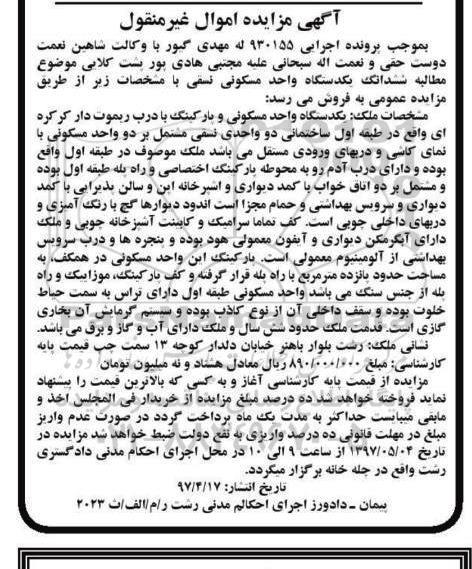 آگهی مزایده اموال غیرمنقول
بموجب پرونده اجرایی ۹۳۰۱۵۵ له مهدی گبور با وکالت شاهین نعمت
دوست حقی و نعمت اله سبحانی علیه مجتبی هادی پور پشت کلایی موضوع
مطالبه ششدانگ یکدستگاه واحد مسکونی نسقی با مشخصات زیر از طریق
مزایده عمومی به فروش می رسد:
مشخصات ملک: یکدستگاه واحد مسکونی و پارکینگ با درب ریموت دار کرکره
ای واقع در طبقه اول ساختمانی دو واحدی نسقی مشتمل بر دو واحد مسکونی با
نمای کاشی و دربهای ورودی مستقل می باشد ملک موصوف در طبقه اول واقع
بوده و دارای درب آدم رو به محوطه پارکینگ اختصاصی و راه پله طبقه اول بوده
و مشتمل بر دو اتاق خواب با کمد دیواری و اشپزخانه اپن و سالن پذیرایی با کمد
دیواری و سرویس بهداشتی و حمام مجزا است اندود دیوارها گچ با رنگ آمیزی و
دربهای داخلی چوبی است. کف تماما سرامیک و کابینت آشپزخانه چوبی و ملک
دارای آبگرمکن دیواری و آیفون معمولی هود بوده و پنجره ها و درب سرویس
بهداشتی از آلومینیوم معمولی است. پارکینگ این واحد مسکونی در همکف، به
مساحت حدود پانزده مترمربع با راه پله قرار گرفته و کف پارکینگ، موزاییک و راه
پله از جنس سنگ می باشد واحد مسکونی طبقه اول دارای تراس به سمت حیاط
خلوت بوده و سقف داخلی آن از نوع کاذب بوده و سیستم گرمایش آن بخاری
گازی است. قدمت ملک حدود شش سال و ملک دارای آب و گاز و برق می باشد.
نشانی ملک: رشت بلوار باهنر خیابان دلدار کوچه ۱۳ سمت چپ قیمت پایه
کارشناسی: مبلغ ۸۹۰/۰۰۰/۰۰۰ ریال معادل هشتاد و نه میلیون تومان
مزایده از قیمت پایه کارشناسی آغاز و به کسی که بالاترین قیمت را پیشنهاد
نماید فروخته خواهد شد ده درصد مبلغ مزایده از خریدار فی المجلس اخذ و
مابقی میبایست حداکثر به مدت یک ماه پرداخت گردد در صورت عدم واریز
مبلغ در مهلت قانونی ده درصد واریزی به نفع دولت ضبط خواهد شد مزایده در
تاریخ ۱۳۹۷/۰۵/۰۴ از ساعت ۹ الی ۱۰ در محل اجرای احکام مدنی دادگستری
رشت واقع در چله خانه برگزار میگردد.
تاریخ انتشار: ۹۷/۴/۱۷
پیمان ـ دادورز اجرای احکالم مدنی رشت ر/م/الف/ث ۲۰۲۳